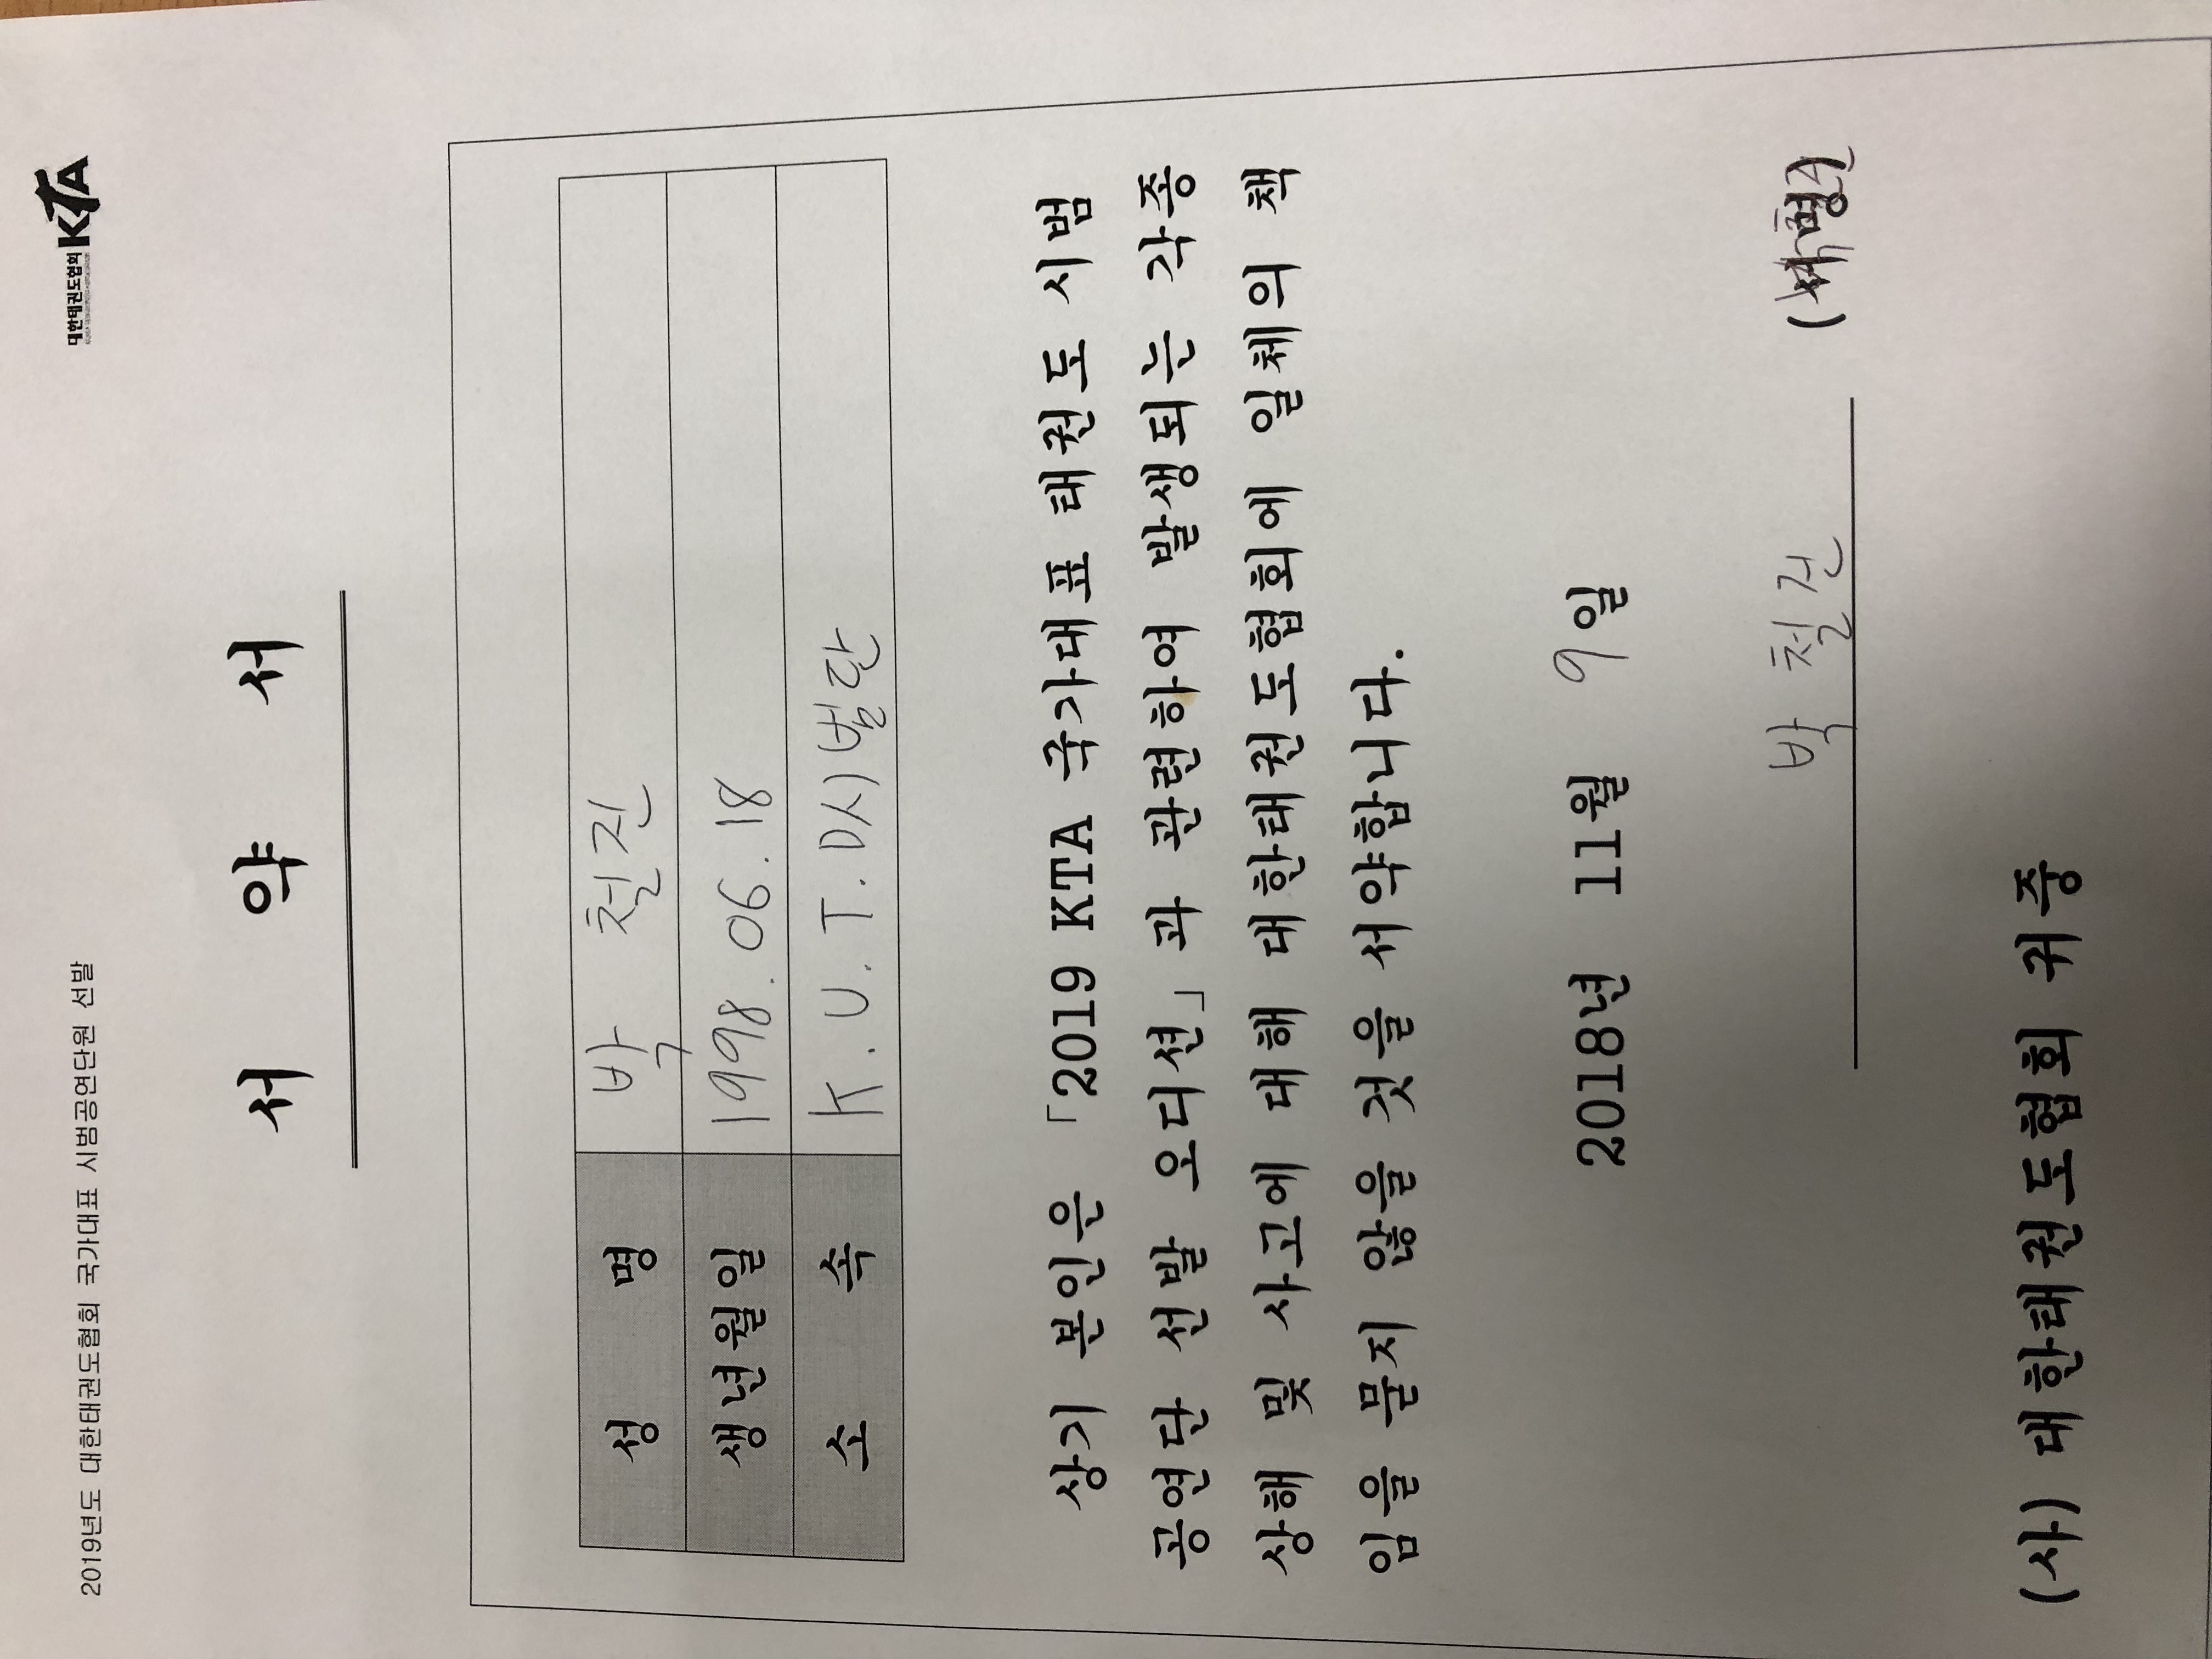 2019년도 대한태권도협회 국가대표 시범공연단원 선발
대한태권도협회 KTA
서 약 서
성 명 박 철진
생년월일 1998.06.18
소 속 K.U.T.D시범단
상기 본인은 「2019 KTA 국가대표 태권도 시범
공연단 선발 오디션」과 관련하여 발생되는 각종
상해 및 사고에 대해 대한태권도협회에 일체의 책
임을 묻지 않을 것을 서약합니다.
2018년 11월 9일
박 철진
(사) 대한태권도협회 귀중